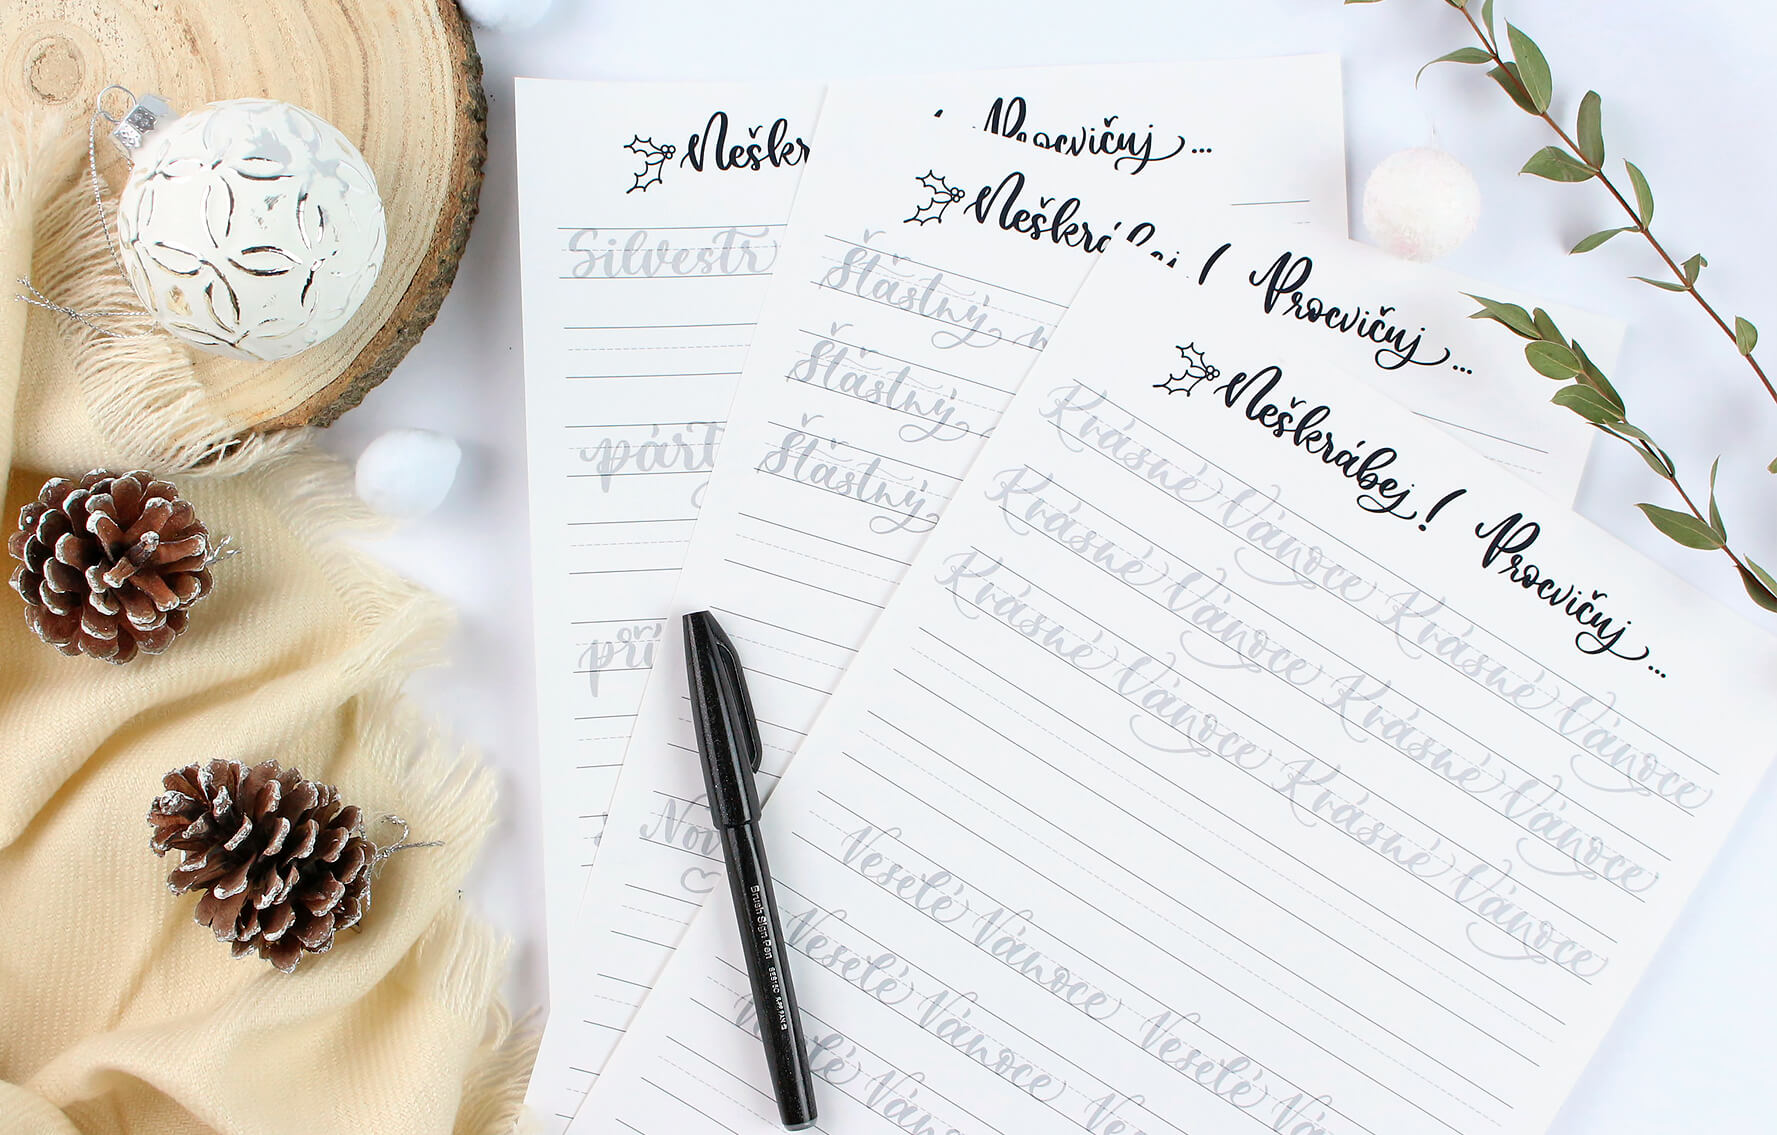 Neškr
Silvestr
párt
pří
Procvičuj...
Neškrábej!
Šťastný
Šťastný
Šťastný
Nov
Procvičuj...
Neškrábej! Procvičuj...
Krásné Vánoce Krásné Vánoce
Krásné Vánoce Krásné Vánoce
Krásné Vánoce Krásné Vánoce
Veselé Vánoce Veselé
Veselé Vánoce Veselé
Veselé Vánoce Ve
Brush Sign Pen SES15C JAPAN